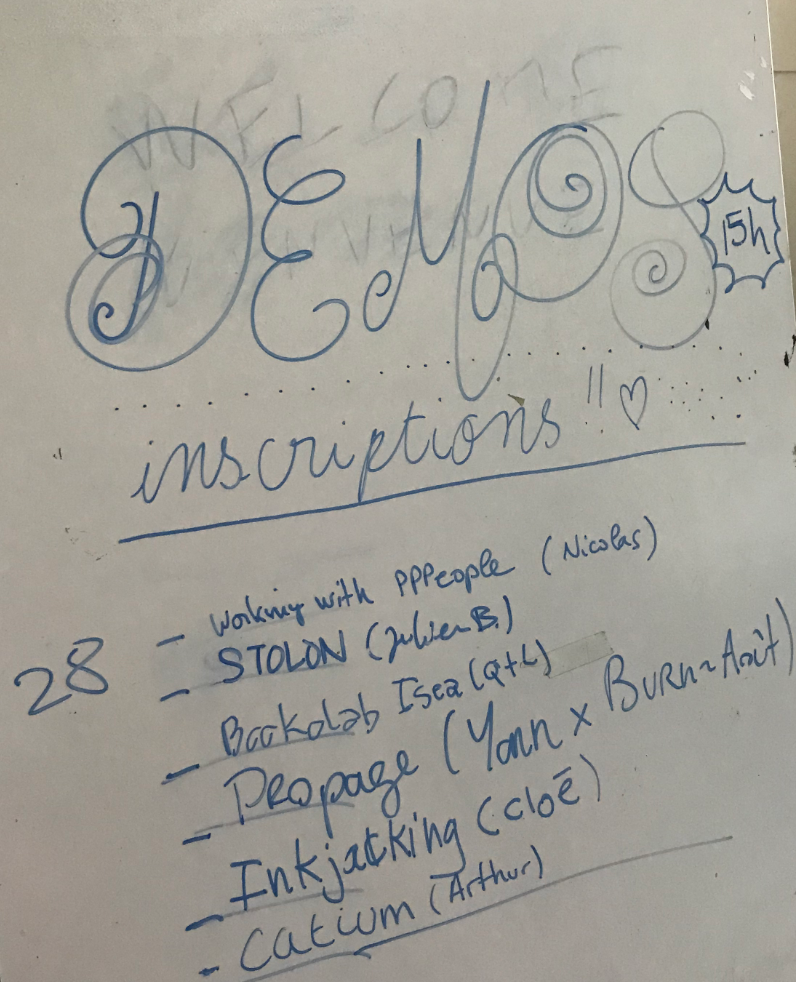 WELCOME
DEMOS
15h
inscriptions !! ♡
28
- Working with PPPeople (Nicolas)
- STOLON (Julien B.)
- Bookolab Isea (Q+L)
- Propage (Yann x Burn~Août)
- Inkjacking (cloē)
- Catium (Arthur)